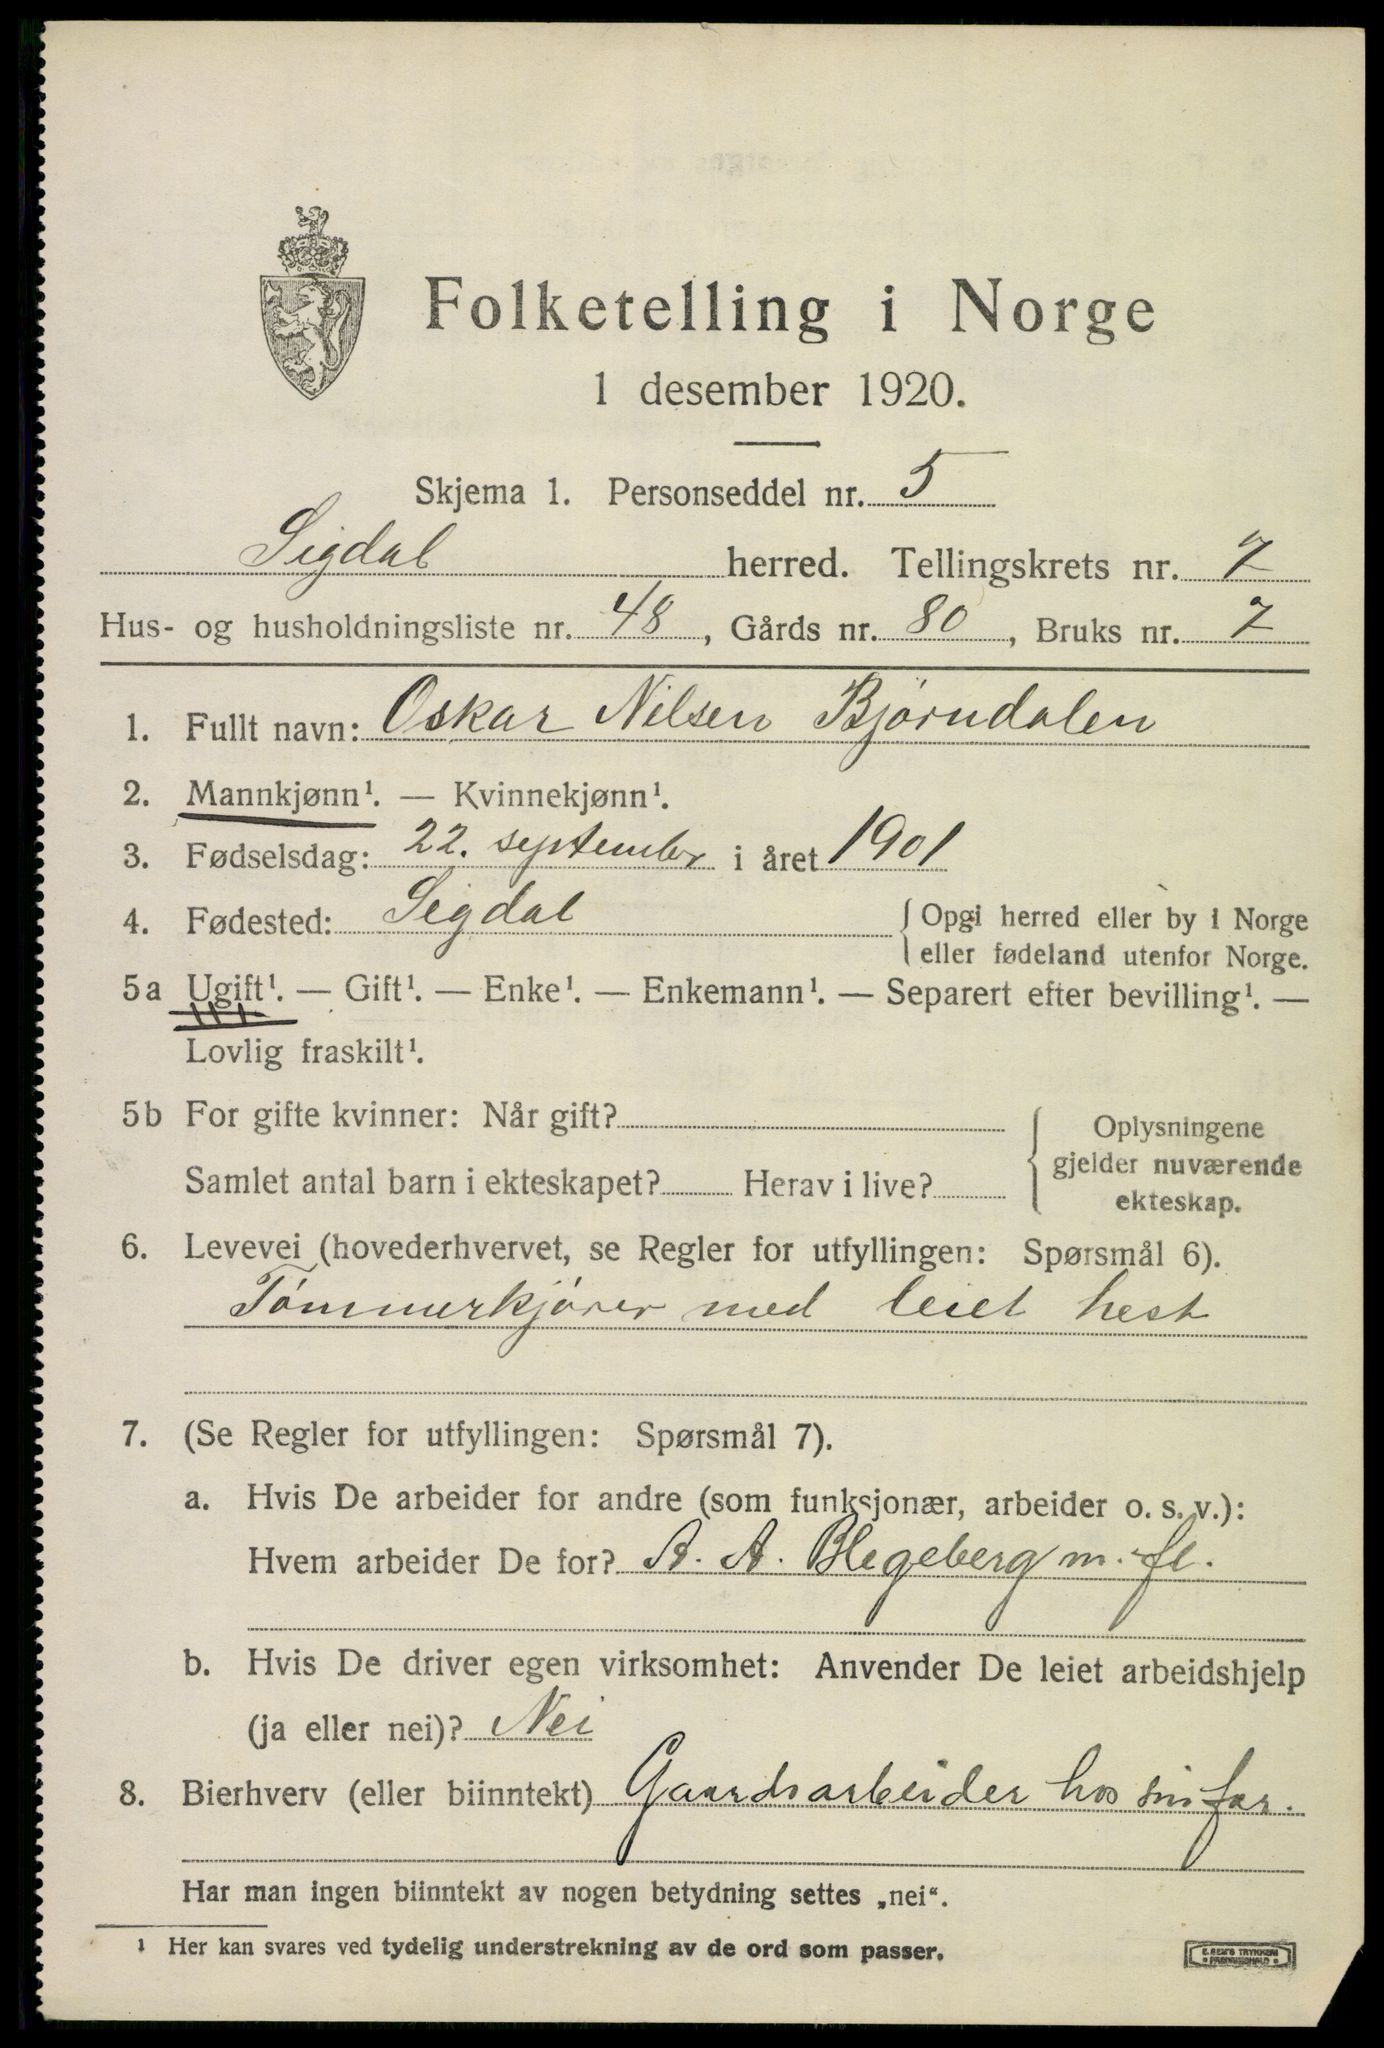 Folketelling i Norge
1 desember 1920.
Skjema 1. Personseddel nr. 5
Sigdal herred. Tellingskrets nr. 7
Hus- og husholdningsliste nr. 48, Gårds nr. 80, Bruks nr. 7
1. Fullt navn: Oskar Nilsen Bjørndalen
2. Mannkjønn¹. — Kvinnekjønn¹.
3. Fødselsdag: 22. september i året 1901
4. Fødested: Sigdal {Opgi herred eller by i Norge
eller fødeland utenfor Norge.
5a Ugift¹. — Gift¹. — Enke¹. — Enkemann¹. — Separert efter bevilling¹. —
Lovlig fraskilt¹.
5b For gifte kvinner: Når gift? { Oplysningene
gjelder nuværende
Samlet antal barn i ekteskapet? Herav i live?
ekteskap.
6. Levevei (hovederhvervet, se Regler for utfyllingen: Spørsmål 6).
Tømmerkjører med leiet hest
7. (Se Regler for utfyllingen: Spørsmål 7).
a. Hvis De arbeider for andre (som funksjonær, arbeider o. s. v.):
Hvem arbeider De for? A. A. Blegeberg m. fl.
b. Hvis De driver egen virksomhet: Anvender De leiet arbeidshjelp
(ja eller nei)? Nei
8. Bierhverv (eller biinntekt) Gaardsarbeider hos sin far.
Har man ingen biinntekt av nogen betydning settes „nei“.
¹ Her kan svares ved tydelig understrekning av de ord som passer.